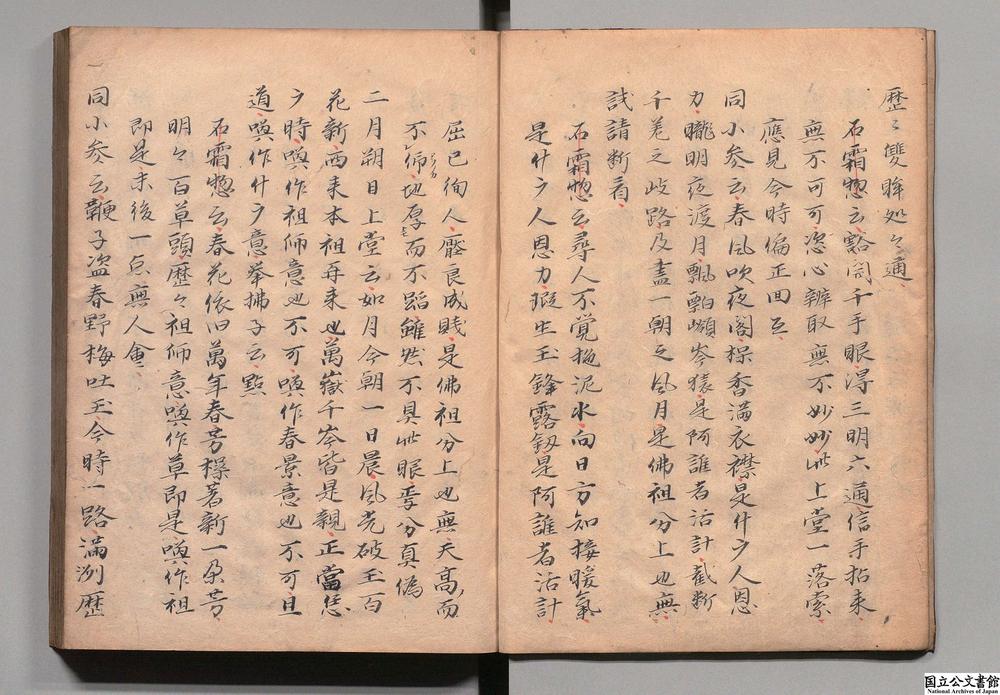 歴〻雙眸処〻通
石霜惣云豁開千手眼得三明六通信手拈来
無不可可恣心辨取無不妙妙此上堂一落索
應見今時偏正回互
同小参云春風吹夜閣梅香満衣襟是什广人恩
力朧明夜渡月飄
岑猿是阿誰者活計截断
千差之岐路及盡一朝之風月是佛祖分上也無
試請断看
石霜惣云尋人不覚拖泥水向日方知接暖氣
是什广人恩力瑕生玉鋒露釼是阿誰者活計
屈已徇人壓良成賤是佛祖分上也無天高而
不
地厚而不蹈雖然不具此眼争分真偽
二月朔日上堂云如月今朝一日晨風光破玉百
花新西来本祖再来也萬嶽千岑皆是親正當恁
广時喚作祖師意也不可喚作春景意也不可且
道喚作什广意挙拂子云點
石霜惣云春花依旧萬年春芳樹著新一朶芳
明〻百草頭歴〻祖師意喚作草即是喚作祖
即是末後一点無人會
同小参云鞭子盗春野梅吐玉今時一路満洌歴
国立公文書館
National Archives of Japan